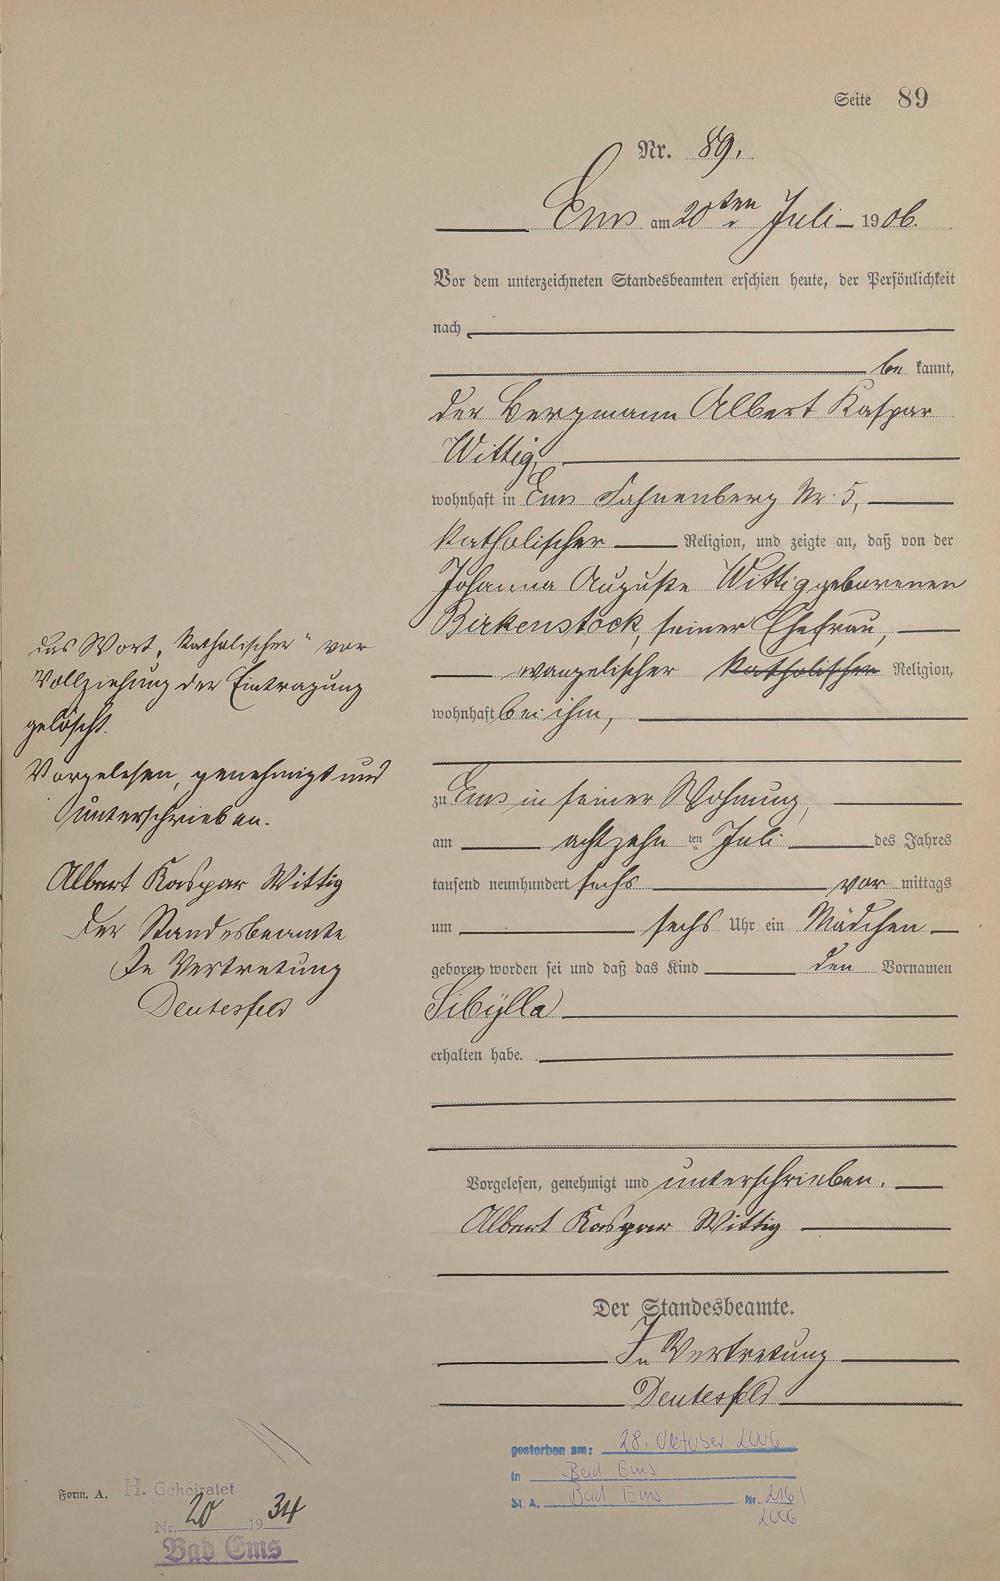 Seite 89
Nr. 89.
Ems am 20ten Juli 1906.
Vor dem unterzeichneten Standesbeamten erschien heute, der Persönlichkeit
nach
be kannt,
der Bergmann Albert Kaspar
Wittig,
wohnhaft in Ems Fahnenberg Nr. 5,
katholischer Religion, und zeigte an, daß von der
Johanna Auguste Wittig geborenen
Birkenstock, seiner Ehefrau,
evangelischer katholischen Religion,
wohnhaft bei ihm,
zu Ems in seiner Wohnung,
am achtzehn ten Juli des Jahres
tausend neunhundert sechs vor mittags
um sechs Uhr ein Mädchen
geboren worden sei und daß das Kind den Vornamen
Sibÿlla
erhalten habe.
Vorgelesen, genehmigt und unterschrieben.
Albert Kaspar Wittig
Der Standesbeamte.
In Vertretung
Deutesfeld
das Wort „katholischen" vor
Vollziehung der Eintragung
gelöscht.
Vorgelesen, genehmigt und
unterschrieben.
Albert Kaspar Wittig
Der Standesbeamte
In Vertretung
Deutesfeld
gestorben am: 28. Oktober 2006
in Bad Ems
St. A. Bad Ems Nr. 216/
2006
Form. A.
H. Geheiratet
Nr. 20 1934
Bad Ems